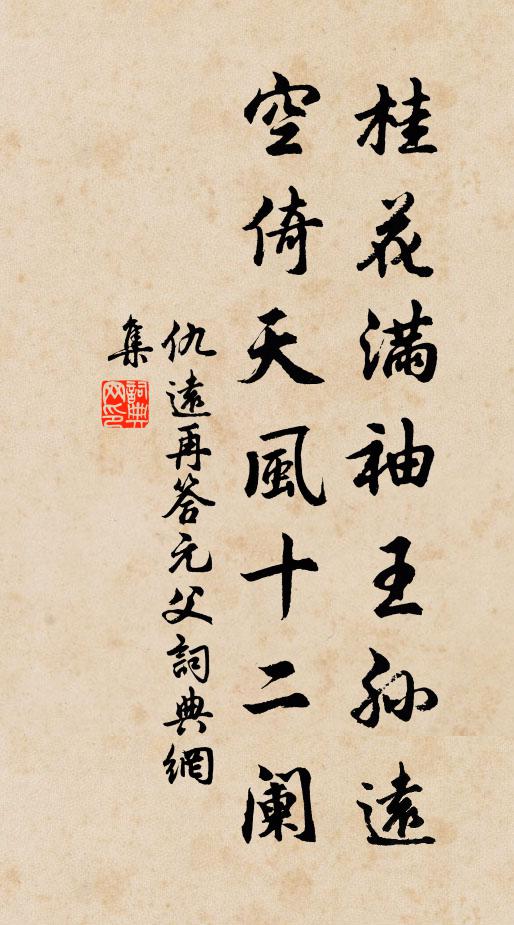 桂花滿袖王孫遠
空倚天風十二阑
仇遠再答元父詞典網
集
詞典
网印